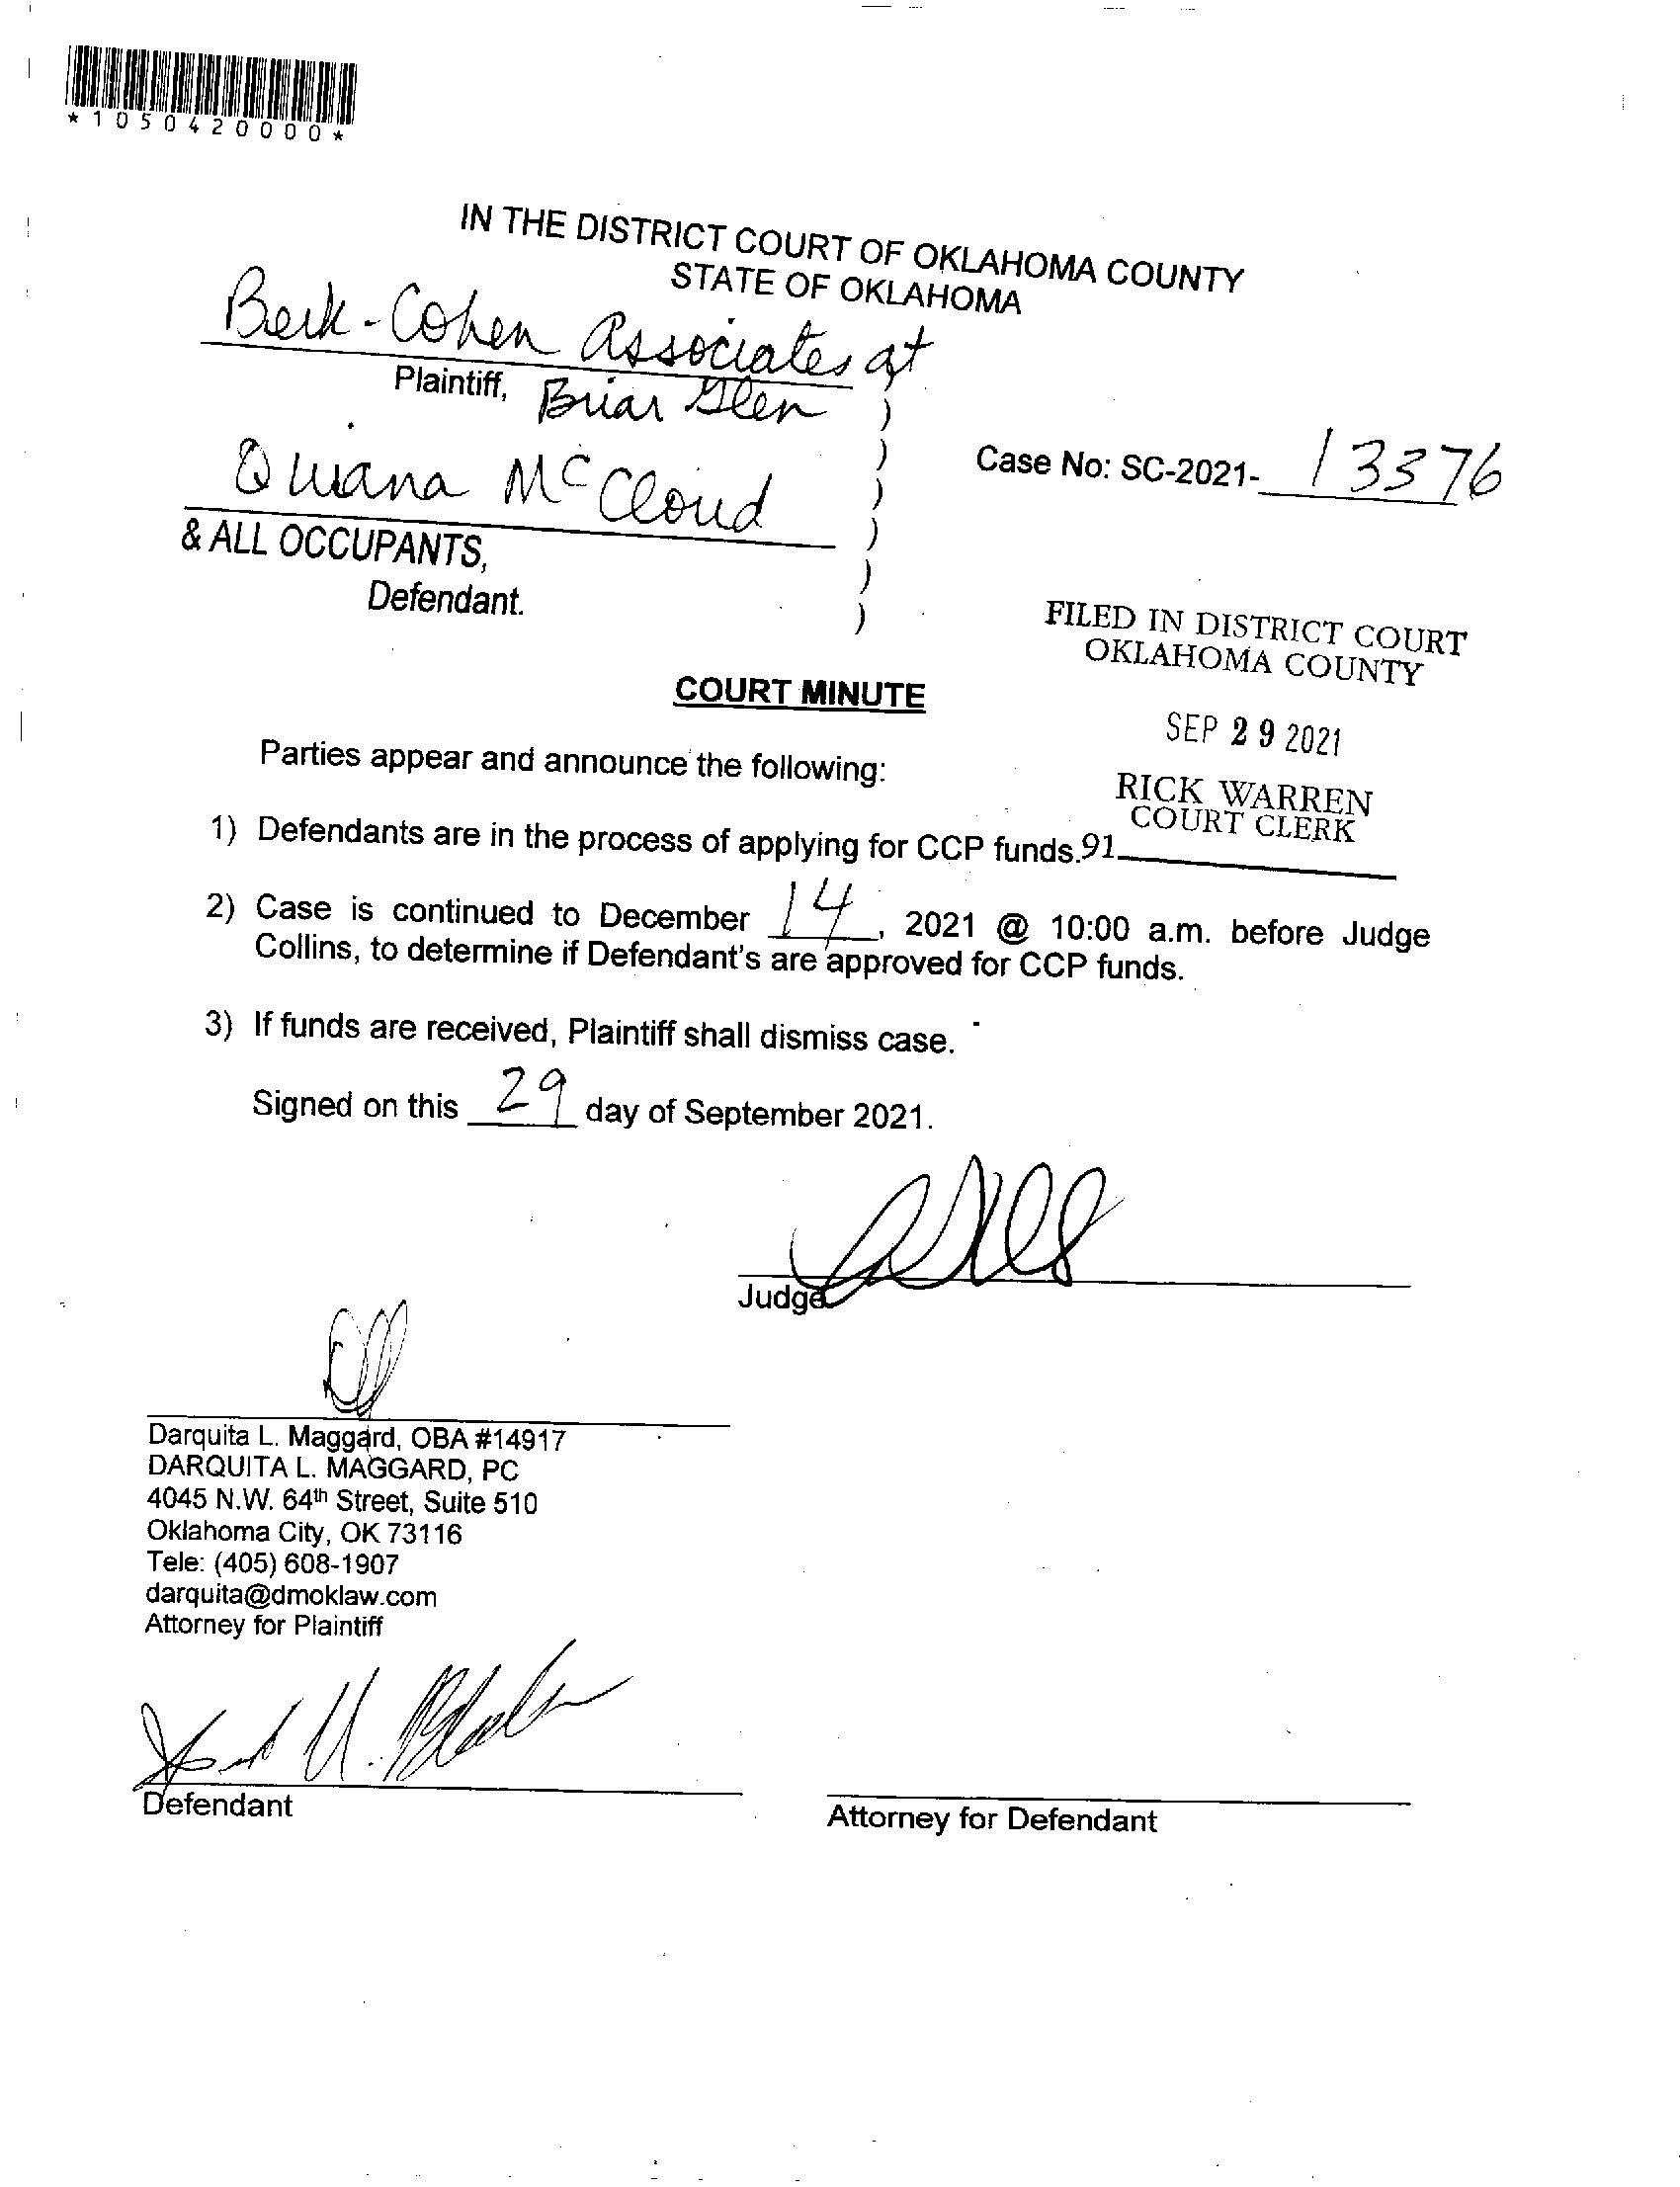 *1050420000*
IN THE DISTRICT COURT OF OKLAHOMA COUNTY
STATE OF OKLAHOMA
Berk-Cohen Associates at
Plaintiff, Briar Glen
)
Qwana McCloud
)
Case No: SC-2021- 13376
)
)
& ALL OCCUPANTS,
)
Defendant.
)
FILED IN DISTRICT COURT
OKLAHOMA COUNTY
COURT MINUTE
SEP 29 2021
Parties appear and announce the following:
RICK WARREN
COURT CLERK
1) Defendants are in the process of applying for CCP funds.91
2) Case is continued to December 14, 2021 @ 10:00 a.m. before Judge
Collins, to determine if Defendant's are approved for CCP funds.
3) If funds are received, Plaintiff shall dismiss case.
Signed on this 29 day of September 2021.
Judge
Darquita L. Maggard, OBA #14917
DARQUITA L. MAGGARD, PC
4045 N.W. 64th Street, Suite 510
Oklahoma City, OK 73116
Tele: (405) 608-1907
darquita@dmoklaw.com
Attorney for Plaintiff
Defendant
Attorney for Defendant